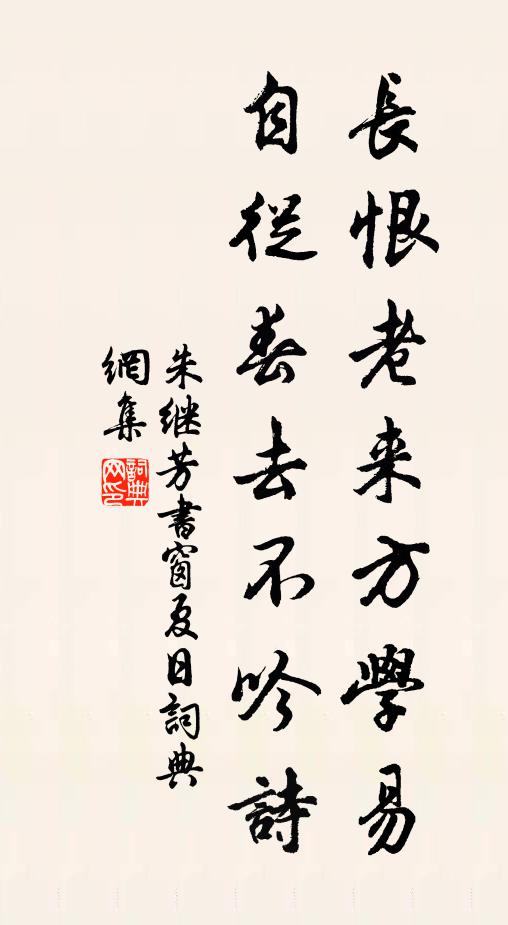 長恨老来方學易
自從春去不吟詩
朱继芳書窗夏日詞典
網集
詞典網印